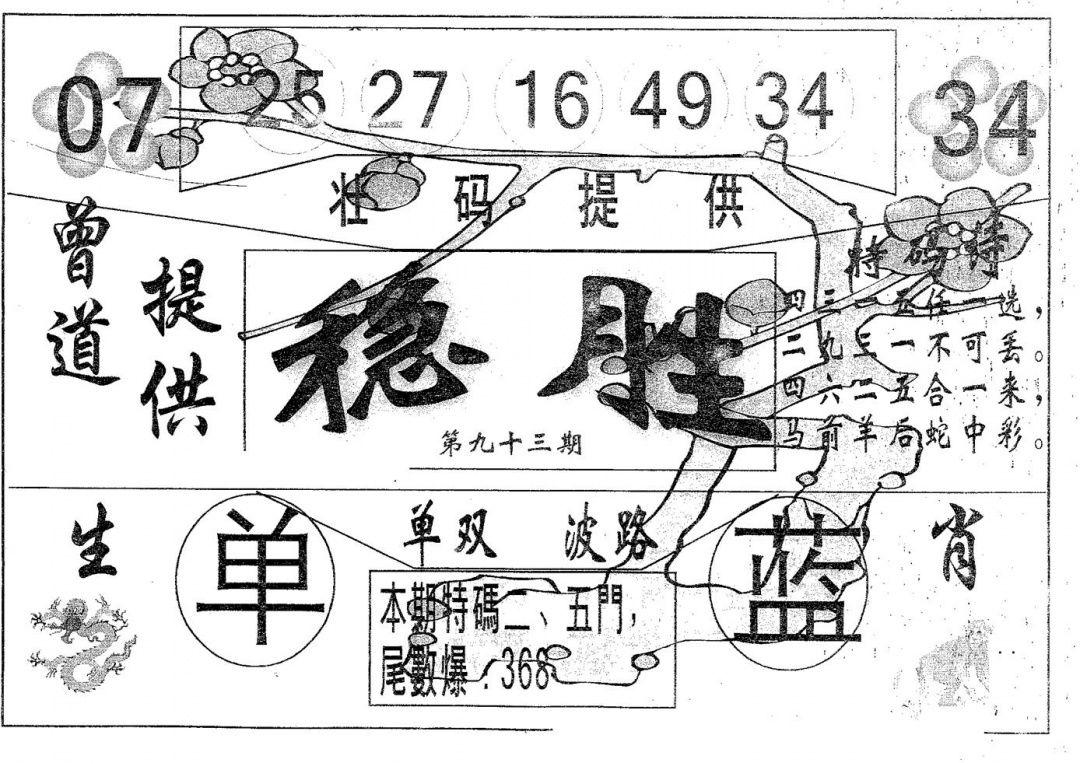 07 25 27 16 49 34 34
壮码提供
曾道
提供
稳胜
第九十三期
特码诗
四三一五任一选，
二九三一不可丢。
四六二五合一来，
马前羊后蛇中彩。
生肖
单
单双 波路
蓝
本期特碼二、五門，
尾數爆：368